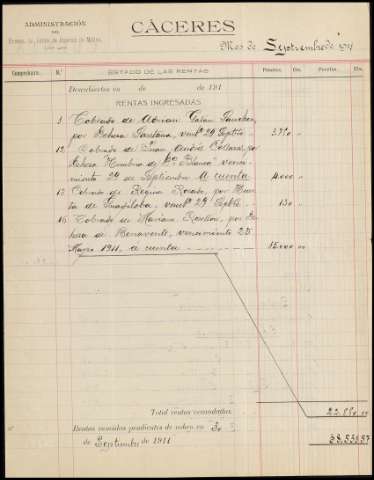 ADMINISTRACIÓN
DEL
CÁCERES
Mes de Septiembre de 1911
Comprobante. N.º ESTADO DE LAS RENTAS Pesetas. Cts. Pesetas. Cts.
Descubiertos en de de 191
RENTAS INGRESADAS
Cobrado de Adrian Galan Sanchez,
por Dehesa vento 29 Septbre
12 Cobrado de Juan por
Dehesa "Cumbres de Blanco" venci-
miento 29 de Septiembre A cuenta 4.000 "
13 Cobrado de Regina Rosado, por Huer-
ta de Guadiloba, vento 29 Septbre 130 "
Cobrado de Mariano por De-
hesa de Benavente, vencimiento 25
Marzo 1911, a cuenta 15.000 "
Total rentas recaudadas
Rentas vencidas pendientes de cobro en 30
de Septiembre de 1911